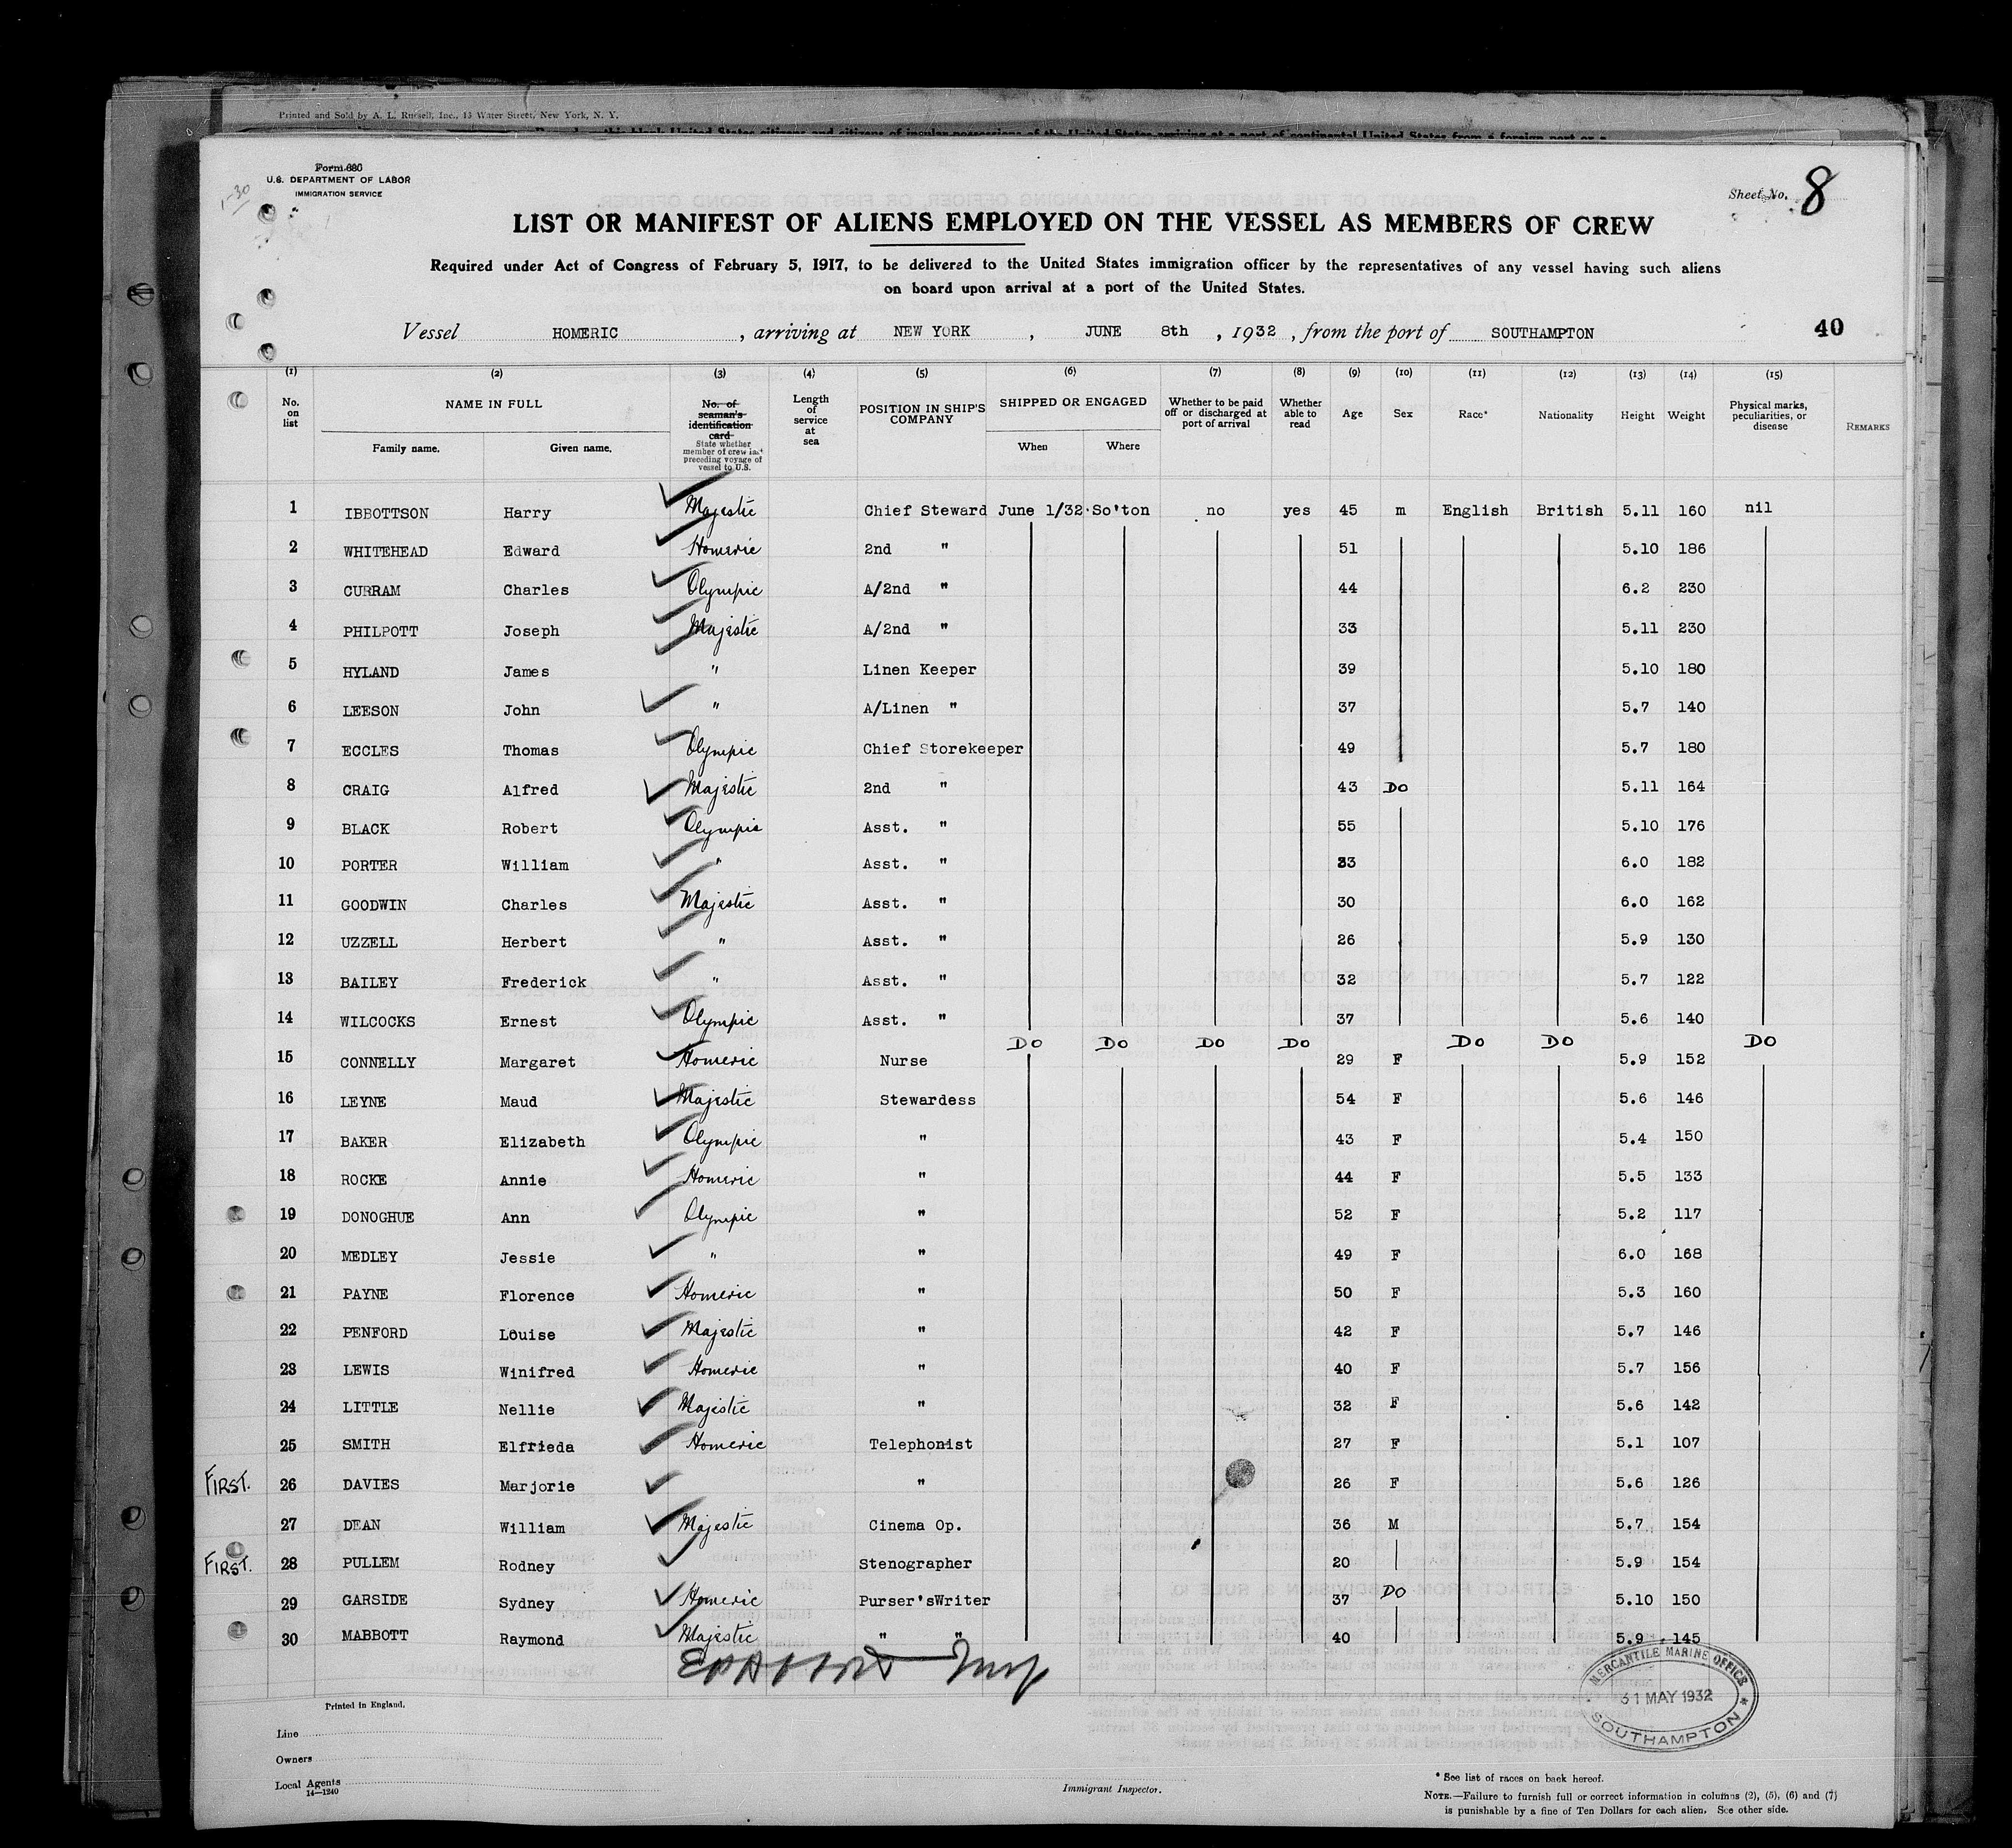 Printed and Sold by A. L. Russell, Inc., 13 Water Street, New York, N. Y.
Form 680
U.S. DEPARTMENT OF LABOR
IMMIGRATION SERVICE
1-30
Sheet No. 8
LIST OR MANIFEST OF ALIENS EMPLOYED ON THE VESSEL AS MEMBERS OF CREW
Required under Act of Congress of February 5, 1917, to be delivered to the United States immigration officer by the representatives of any vessel having such aliens
on board upon arrival at a port of the United States.
Vessel HOMERIC , arriving at NEW YORK , JUNE 8th , 1932 , from the port of SOUTHAMPTON 40
(1) (2) (3) (4) (5) (6) (7) (8) (9) (10) (11) (12) (13) (14) (15)
No. on list NAME IN FULL Family name. Given name. No. of seaman's identification card State whether member of crew last preceding voyage of vessel to U.S. Length of service at sea POSITION IN SHIP'S COMPANY SHIPPED OR ENGAGED When Where Whether to be paid off or discharged at port of arrival Whether able to read Age Sex Race* Nationality Height Weight Physical marks, peculiarities, or disease REMARKS
1 IBBOTTSON Harry Majestic Chief Steward June 1/32 So'ton no yes 45 m English British 5.11 160 nil
2 WHITEHEAD Edward Homeric 2nd " 51 5.10 186
3 CURRAM Charles Olympic A/2nd " 44 6.2 230
4 PHILPOTT Joseph Majestic A/2nd " 33 5.11 230
5 HYLAND James " Linen Keeper 39 5.10 180
6 LEESON John " A/Linen " 37 5.7 140
7 ECCLES Thomas Olympic Chief Storekeeper 49 5.7 180
8 CRAIG Alfred Majestic 2nd " 43 DO 5.11 164
9 BLACK Robert Olympic Asst. " 55 5.10 176
10 PORTER William " Asst. " 33 6.0 182
11 GOODWIN Charles Majestic Asst. " 30 6.0 162
12 UZZELL Herbert " Asst. " 26 5.9 130
13 BAILEY Frederick " Asst. " 32 5.7 122
14 WILCOCKS Ernest Olympic Asst. " 37 5.6 140
DO DO DO DO DO DO DO
15 CONNELLY Margaret Homeric Nurse 29 F 5.9 152
16 LEYNE Maud Majestic Stewardess 54 F 5.6 146
17 BAKER Elizabeth Olympic " 43 F 5.4 150
18 ROCKE Annie Homeric " 44 F 5.5 133
19 DONOGHUE Ann Olympic " 52 F 5.2 117
20 MEDLEY Jessie " " 49 F 6.0 168
21 PAYNE Florence Homeric " 50 F 5.3 160
22 PENFORD Louise Majestic " 42 F 5.7 146
23 LEWIS Winifred Homeric " 40 F 5.7 156
24 LITTLE Nellie Majestic " 32 F 5.6 142
25 SMITH Elfrieda Homeric Telephonist 27 F 5.1 107
FIRST. 26 DAVIES Marjorie " 26 F 5.6 126
27 DEAN William Majestic Cinema Op. 36 M 5.7 154
FIRST. 28 PULLEM Rodney Stenographer 20 5.9 154
29 GARSIDE Sydney Homeric Purser'sWriter 37 DO 5.10 150
30 MABBOTT Raymond Majestic " " 40 5.9 145
MERCANTILE MARINE OFFICE
31 MAY 1932
SOUTHAMPTON
Printed in England.
Line
Owners
Local Agents
14—1240
Immigrant Inspector.
* See list of races on back hereof.
NOTE.—Failure to furnish full or correct information in columns (2), (5), (6) and (7)
is punishable by a fine of Ten Dollars for each alien. See other side.